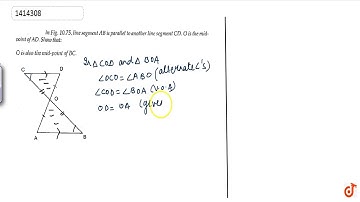 1414308
In Fig. 10.75, line segment AB is parallel to another line segment CD. O is the mid-
point of AD. Show that:
O is also the mid-point of BC.
In △COD and △ BOA
∠OCD = ∠ABO (alternate ∠'s)
∠COD = ∠BOA (V.O.A)
OD = OA (give
C D
O
A B